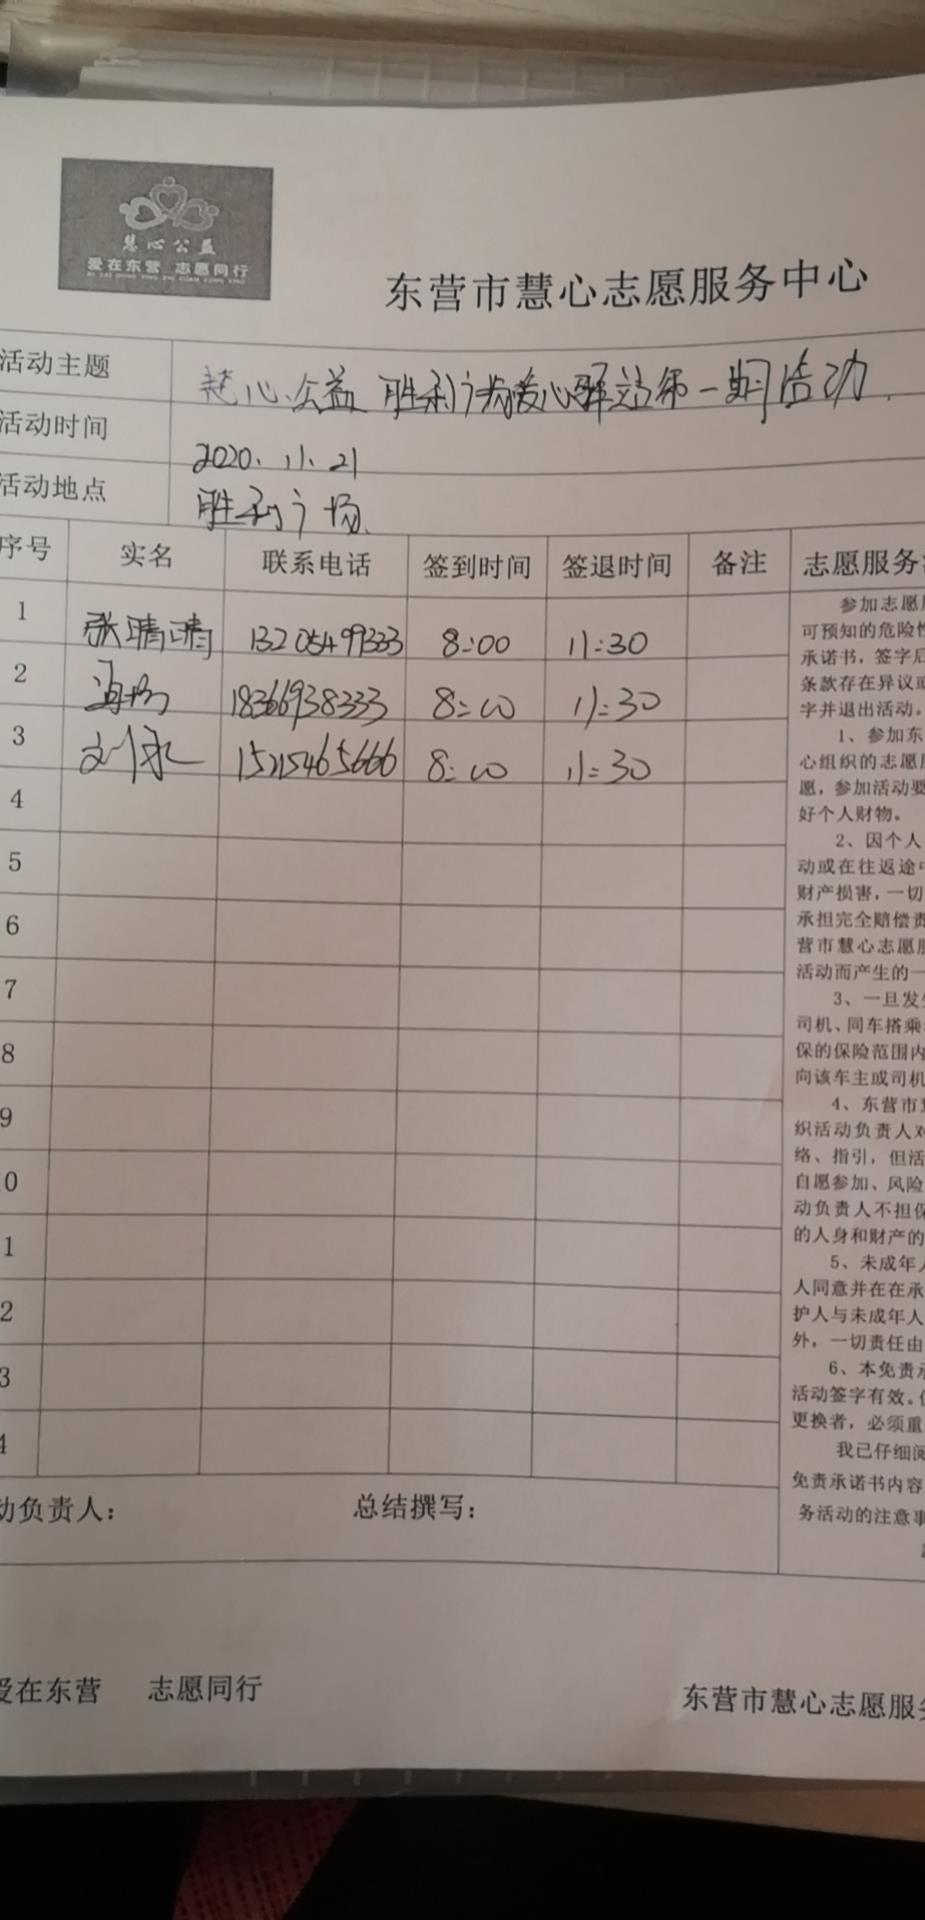 慧心公益
爱在东营 志愿同行
东营市慧心志愿服务中心
活动主题 慧心公益 胜利广场暖心驿站第一期活动
活动时间 2020.11.21
活动地点 胜利广场
序号 实名 联系电话 签到时间 签退时间 备注 志愿服务
1 张晴晴 13205499333 8:00 11:30
2 18366938333 8:00 11:30
3 刘永 15215465666 8:00 11:30
4
5
6
7
8
9
0
1
2
3
4
参加志愿
可预知的危险性
承诺书，签字后
条款存在异议或
字并退出活动。
1、参加东
心组织的志愿
愿，参加活动要
好个人财物。
2、因个人
动或在往返途中
财产损害，一切
承担完全赔偿责
营市慧心志愿
活动而产生的一
3、一旦发
司机、同车搭乘
保的保险范围内
向该车主或司机
4、东营市
织活动负责人对
络、指引，但活
自愿参加、风险
动负责人不担保
的人身和财产的
5、未成年
人同意并在在承
护人与未成年人
外，一切责任由
6、本免责
活动签字有效。
更换者，必须重
我已仔细阅
免责承诺书内容
务活动的注意事
动负责人： 总结撰写：
爱在东营 志愿同行 东营市慧心志愿服